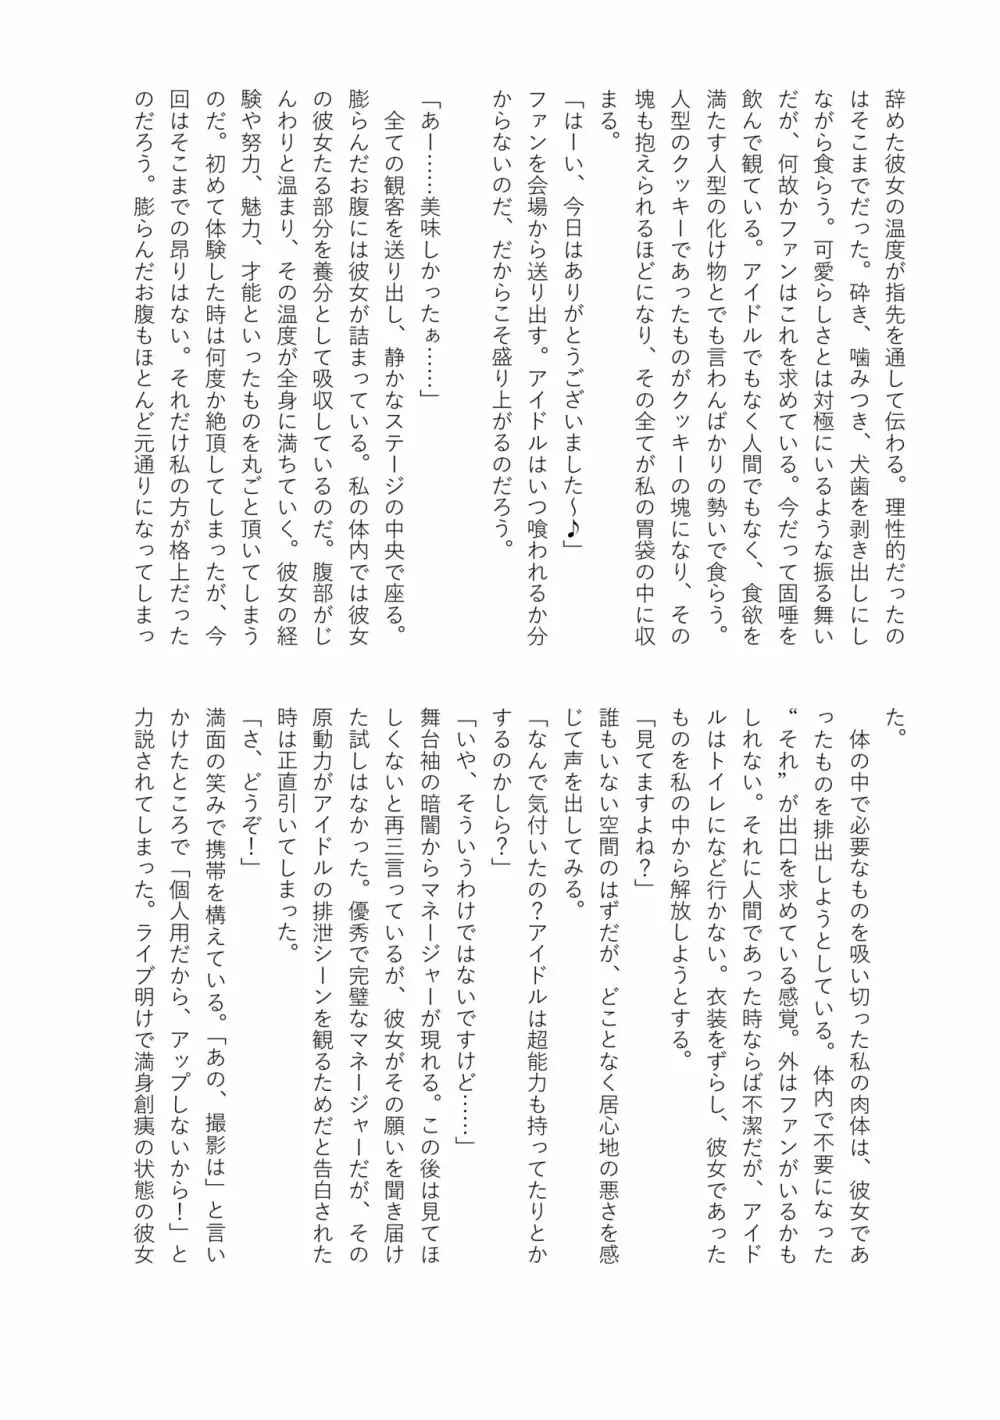 辞めた彼女の温度が指先を通して伝わる。理性的だったの
はそこまでだった。砕き、噛みつき、犬歯を剥き出しにし
ながら食らう。可愛らしさとは対極にいるような振る舞い
だが、何故かファンはこれを求めている。今だって固唾を
飲んで観ている。アイドルでもなく人間でもなく、食欲を
満たす人型の化け物とでも言わんばかりの勢いで食らう。
人型のクッキーであったものがクッキーの塊になり、その
塊も抱えられるほどになり、その全てが私の胃袋の中に収
まる。
「はーい、今日はありがとうございました～♪」
ファンを会場から送り出す。アイドルはいつ喰われるか分
からないのだ、だからこそ盛り上がるのだろう。
「あー……美味しかったぁ……」
全ての観客を送り出し、静かなステージの中央で座る。
膨らんだお腹には彼女が詰まっている。私の体内では彼女
の彼女たる部分を養分として吸収しているのだ。腹部がじ
んわりと温まり、その温度が全身に満ちていく。彼女の経
験や努力、魅力、才能といったものを丸ごと頂いてしまう
のだ。初めて体験した時は何度か絶頂してしまったが、今
回はそこまでの昂りはない。それだけ私の方が格上だった
のだろう。膨らんだお腹もほとんど元通りになってしまっ
た。
体の中で必要なものを吸い切った私の肉体は、彼女であ
ったものを排出しようとしている。体内で不要になった
“それ”が出口を求めている感覚。外はファンがいるかも
しれない。それに人間であった時ならば不潔だが、アイド
ルはトイレになど行かない。衣装をずらし、彼女であった
ものを私の中から解放しようとする。
「見てますよね？」
誰もいない空間のはずだが、どことなく居心地の悪さを感
じて声を出してみる。
「なんで気付いたの？アイドルは超能力も持ってたりとか
するのかしら？」
「いや、そういうわけではないですけど……」
舞台袖の暗闇からマネージャーが現れる。この後は見てほ
しくないと再三言っているが、彼女がその願いを聞き届け
た試しはなかった。優秀で完璧なマネージャーだが、その
原動力がアイドルの排泄シーンを観るためだと告白された
時は正直引いてしまった。
「さ、どうぞ！」
満面の笑みで携帯を構えている。「あの、撮影は」と言い
かけたところで「個人用だから、アップしないから！」と
力説されてしまった。ライブ明けで満身創痍の状態の彼女